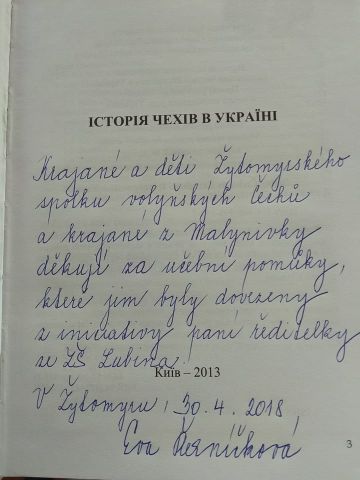 ІСТОРІЯ ЧЕХІВ В УКРАЇНІ
Krajané a děti Žytomyrského
spolku volyňských Čechů
a krajané z Malynivky
děkují za učební pomůcky,
které jim byly dovezeny
z iniciativy paní ředitelky
ze ZŠ Lubina.
Київ – 2013
V Žytomyru, 30.4.2018,
Eva
3